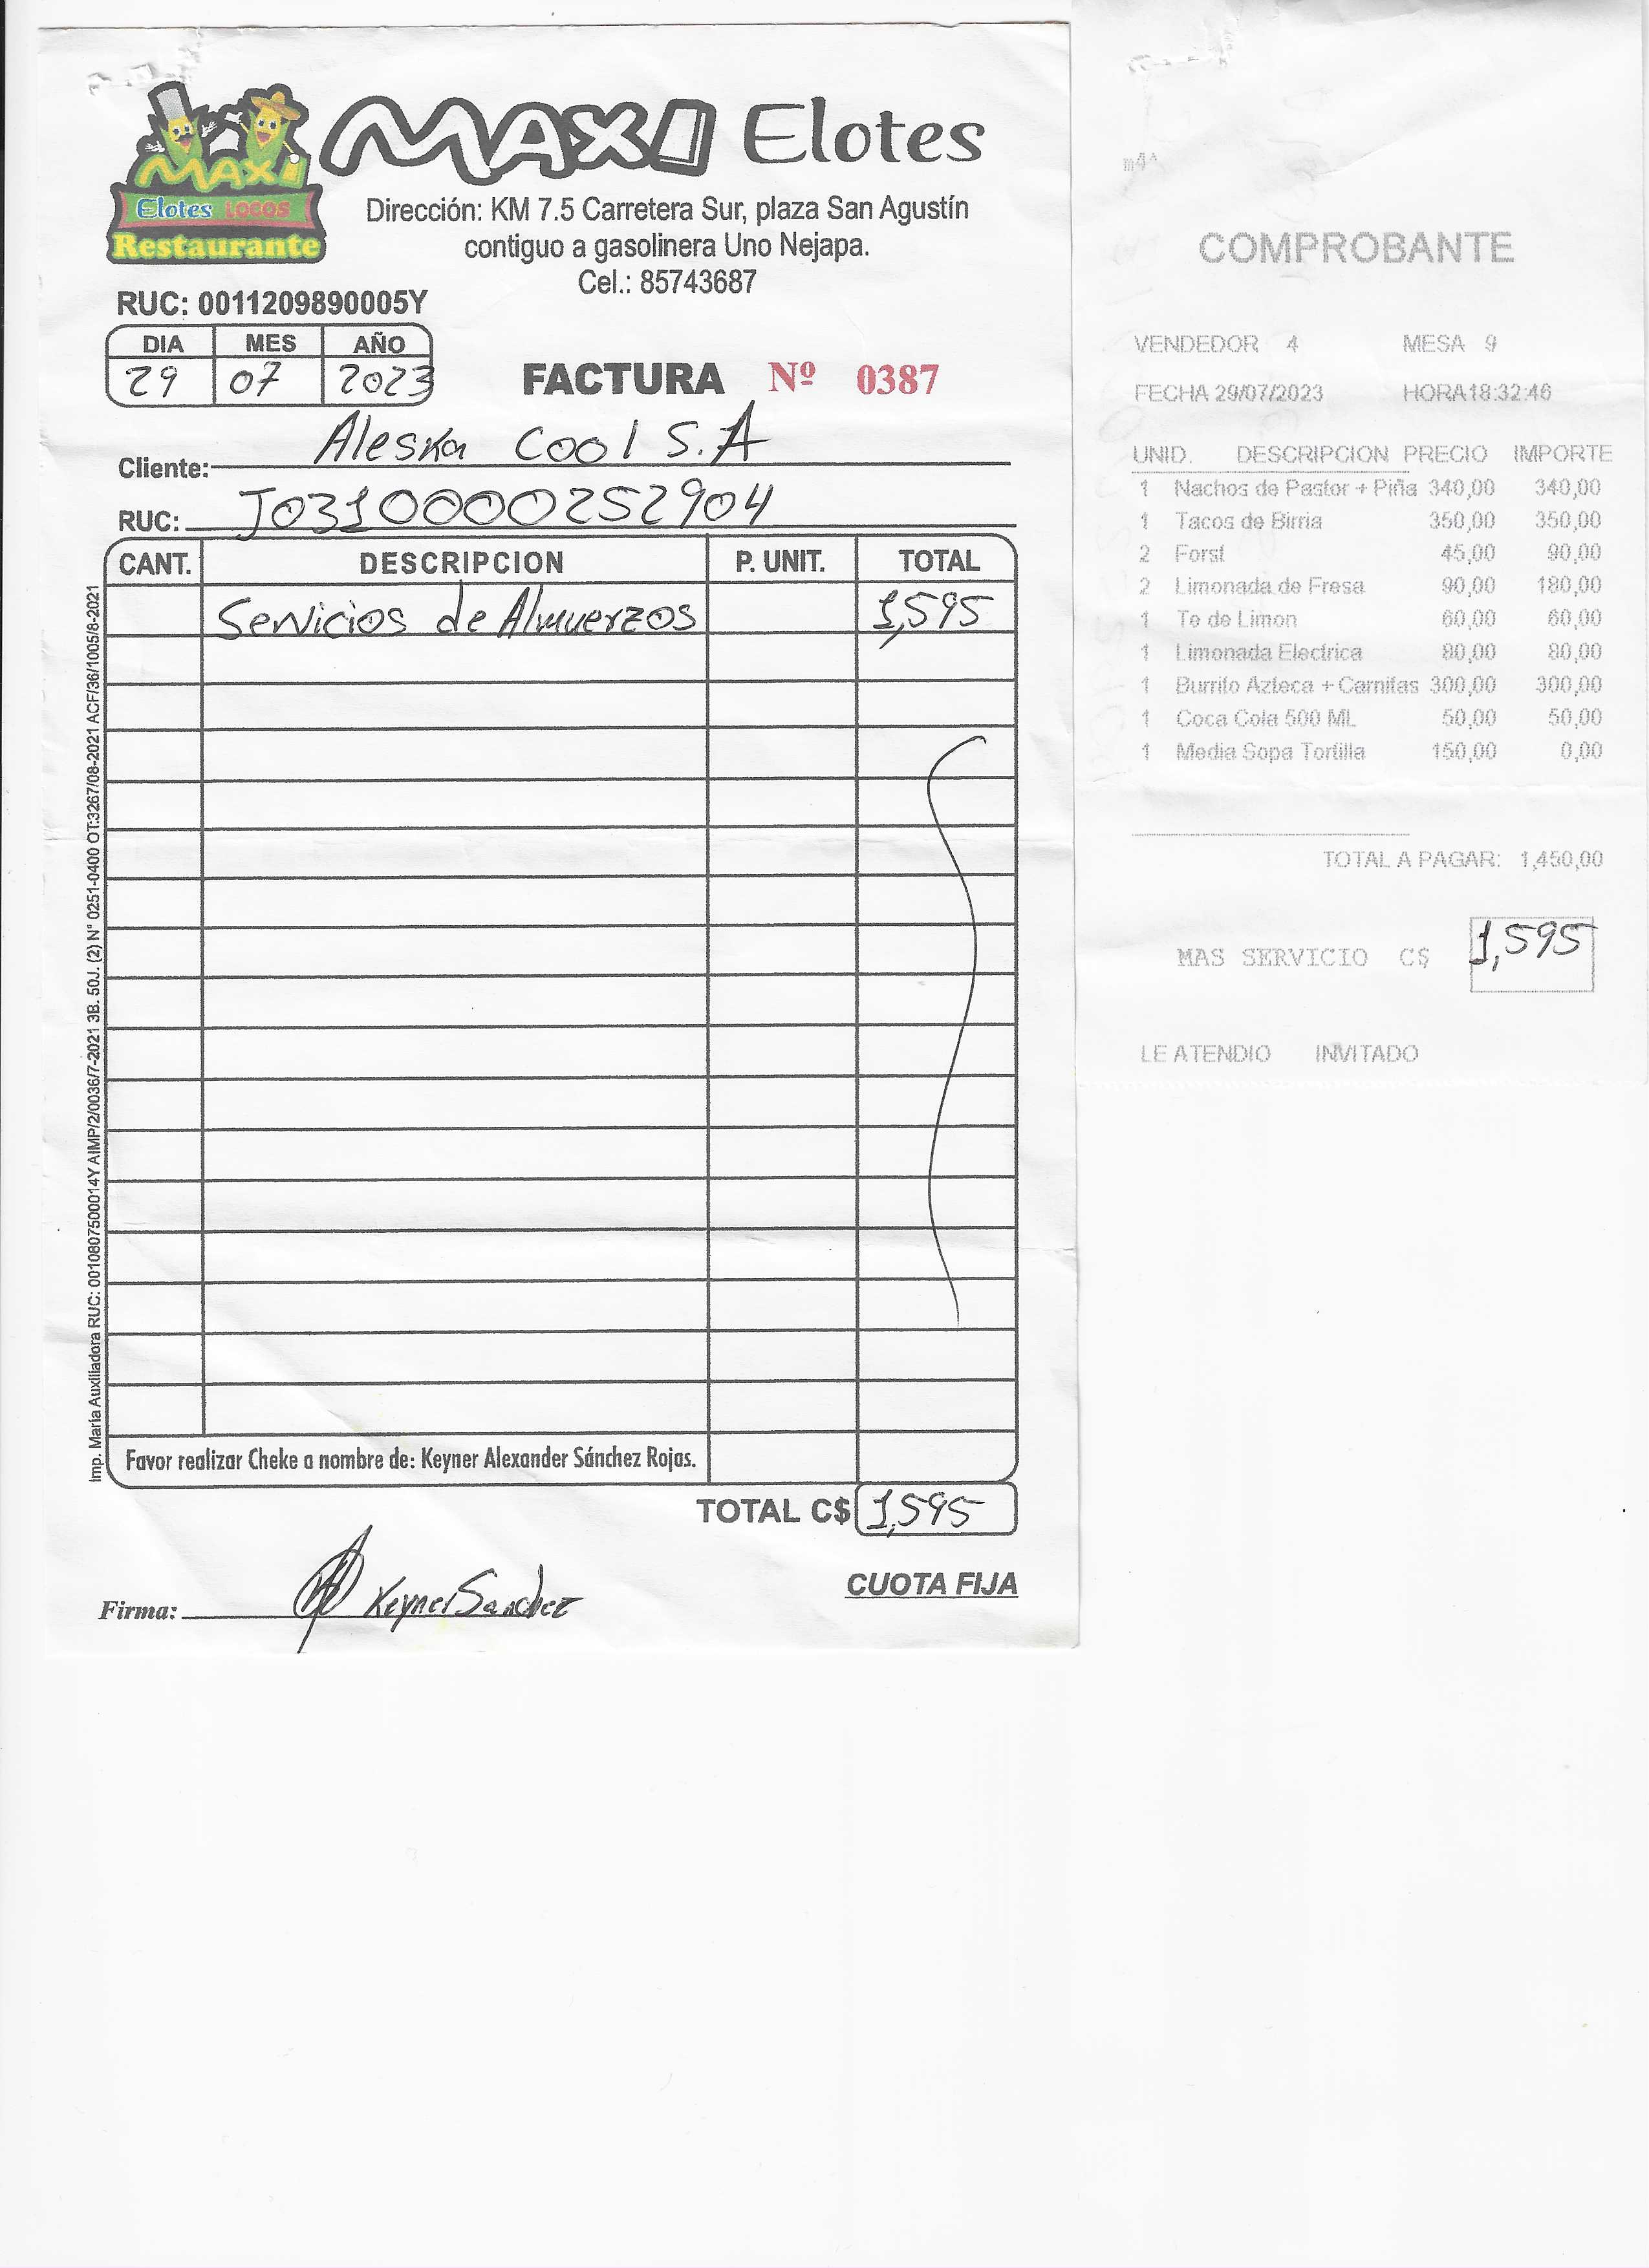 MAXI
Elotes Locos
Restaurante
MAXI Elotes
Dirección: KM 7.5 Carretera Sur, plaza San Agustín
contiguo a gasolinera Uno Nejapa.
Cel.: 85743687
RUC: 0011209890005Y
DIA MES AÑO
29 07 2023
FACTURA Nº 0387
Cliente: Aleska Cool S.A
RUC: J0310000252904
CANT. DESCRIPCION P. UNIT. TOTAL
Servicios de Almuerzos 1,595
Favor realizar Cheke a nombre de: Keyner Alexander Sánchez Rojas.
TOTAL C$ 1,595
CUOTA FIJA
Firma: Keyner Sanchez
Imp. María Auxiliadora RUC: 0010807500014Y AIMP/2/0036/7-2021 3B. 50J. (2) N° 0251-0400 OT:3267/08-2021 ACF/36/1005/8-2021
m4^
COMPROBANTE
VENDEDOR 4 MESA 9
FECHA 29/07/2023 HORA18:32:46
UNID. DESCRIPCION PRECIO IMPORTE
1 Nachos de Pastor + Piña 340,00 340,00
1 Tacos de Birria 350,00 350,00
2 Forst 45,00 90,00
2 Limonada de Fresa 90,00 180,00
1 Te de Limon 60,00 60,00
1 Limonada Electrica 80,00 80,00
1 Burrito Azteca + Carnitas 300,00 300,00
1 Coca Cola 500 ML 50,00 50,00
1 Media Sopa Tortilla 150,00 0,00
TOTAL A PAGAR: 1,450,00
MAS SERVICIO C$ 1,595
LE ATENDIO INVITADO